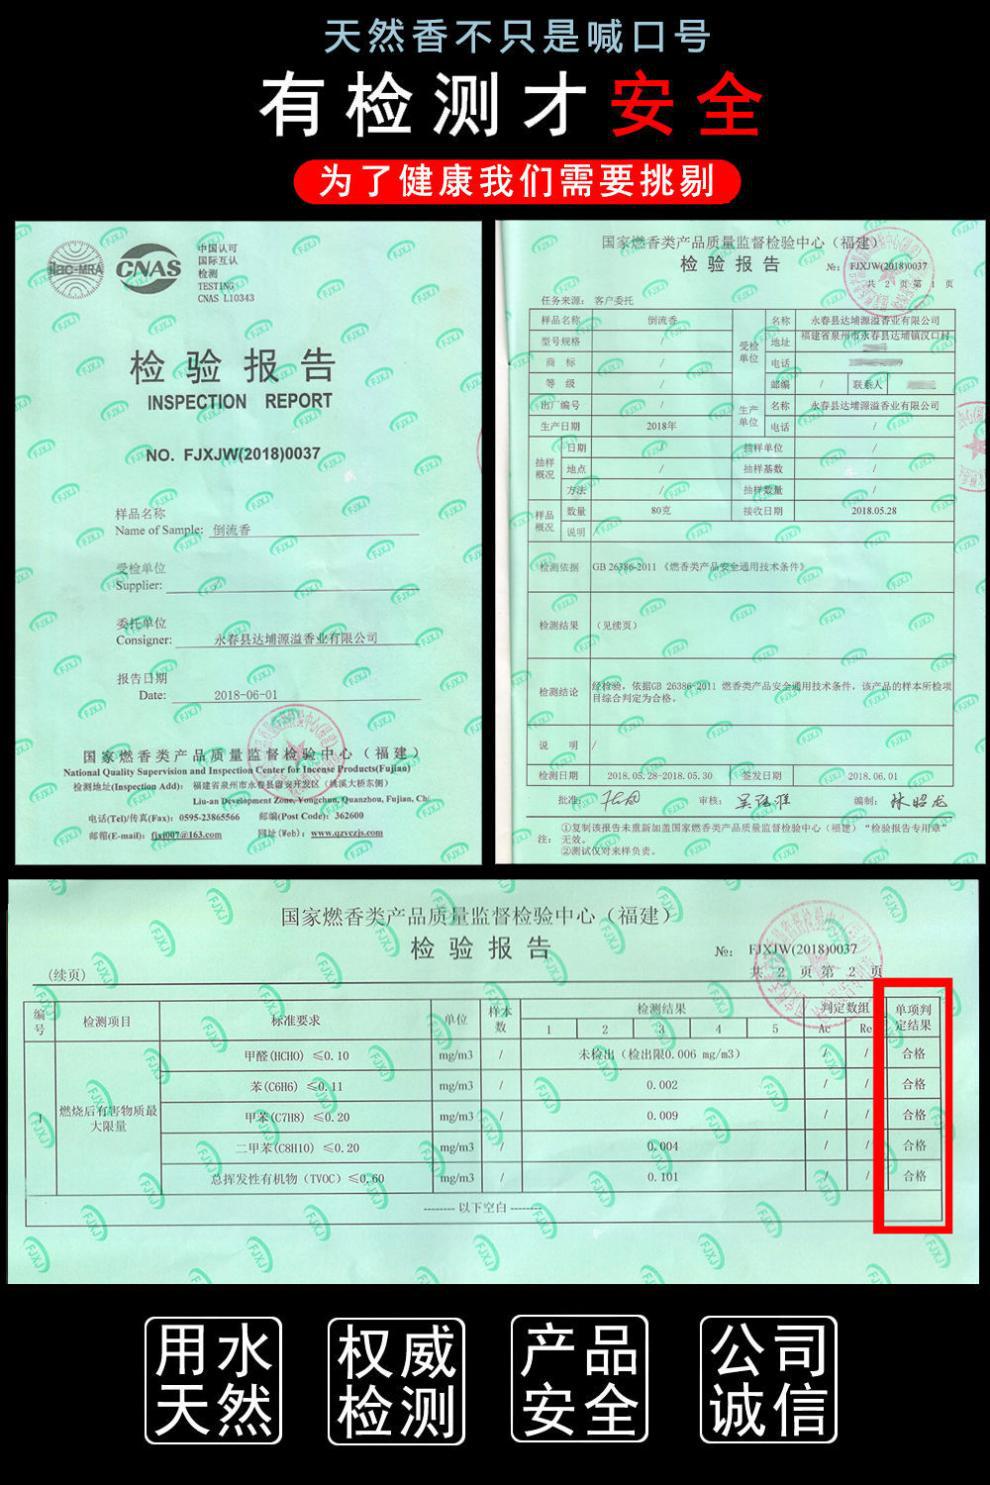 天然香不只是喊口号
有检测才安全
为了健康我们需要挑剔
ilac-MRA
CNAS
中国认可
国际互认
检测
TESTING
CNAS L10343
检验报告
INSPECTION REPORT
NO. FJXJW(2018)0037
样品名称
Name of Sample: 倒流香
受检单位
Supplier: /
委托单位
Consigner: 永春县达埔源溢香业有限公司
报告日期
Date: 2018-06-01
国家燃香类产品质量监督检验中心（福建）
National Quality Supervision and Inspection Center for Incense Products(Fujian)
检测地址(Inspection Add): 福建省泉州市永春县留安开发区（桃溪大桥东侧）
Liu-an Development Zone, Yongchun, Quanzhou, Fujian, Ch
电话(Tel)/传真(Fax): 0595-23865566 邮编(Post Code): 362600
邮箱(E-mail): fjxj007@163.com 网址(Web): www.qzvczjs.com
国家燃香类产品质量监督检验中心（福建）
检验报告
№: FJXJW(2018)0037
共 2 页 第 1 页
任务来源: 客户委托
样品名称 倒流香 受检单位 名称 永春县达埔源溢香业有限公司
型号规格 / 地址 福建省泉州市永春县达埔镇汉口村
商标 / 电话
等级 / 邮编 / 联系人
出厂编号 / 生产单位 名称 永春县达埔源溢香业有限公司
生产日期 2018年 电话 /
抽样概况 日期 / 抽样单位 /
地点 / 抽样基数 /
方法 / 抽样数量 /
样品概况 数量 80克 接收日期 2018.05.28
说明 /
检测依据 GB 26386-2011 《燃香类产品安全通用技术条件》
检测结果 （见续页）
检测结论 经检验，依据GB 26386-2011 燃香类产品安全通用技术条件，该产品的样本所检项
目综合判定为合格。
说 明 /
检测日期 2018.05.28-2018.05.30 签发日期 2018.06.01
批准: 审核: 编制:
注: ①复制该报告未重新加盖国家燃香类产品质量监督检验中心（福建）“检验报告专用章”
无效。
②测试仅对来样负责。
国家燃香类产品质量监督检验中心（福建）
检验报告
№: FJXJW(2018)0037
(续页)
共 2 页 第 2 页
编号 检测项目 标准要求 单位 样本数 检测结果 判定数组 单项判定结果
1 2 3 4 5 Ac Re
1 燃烧后有害物质最大限量 甲醛(HCHO) ≤0.10 mg/m3 / 未检出（检出限0.006 mg/m3） / / 合格
苯(C6H6) ≤0.11 mg/m3 / 0.002 / / 合格
甲苯(C7H8) ≤0.20 mg/m3 / 0.009 / / 合格
二甲苯(C8H10) ≤0.20 mg/m3 / 0.004 / / 合格
总挥发性有机物（TVOC）≤0.60 mg/m3 / 0.101 / / 合格
-------- 以下空白 --------
用水天然
权威检测
产品安全
公司诚信